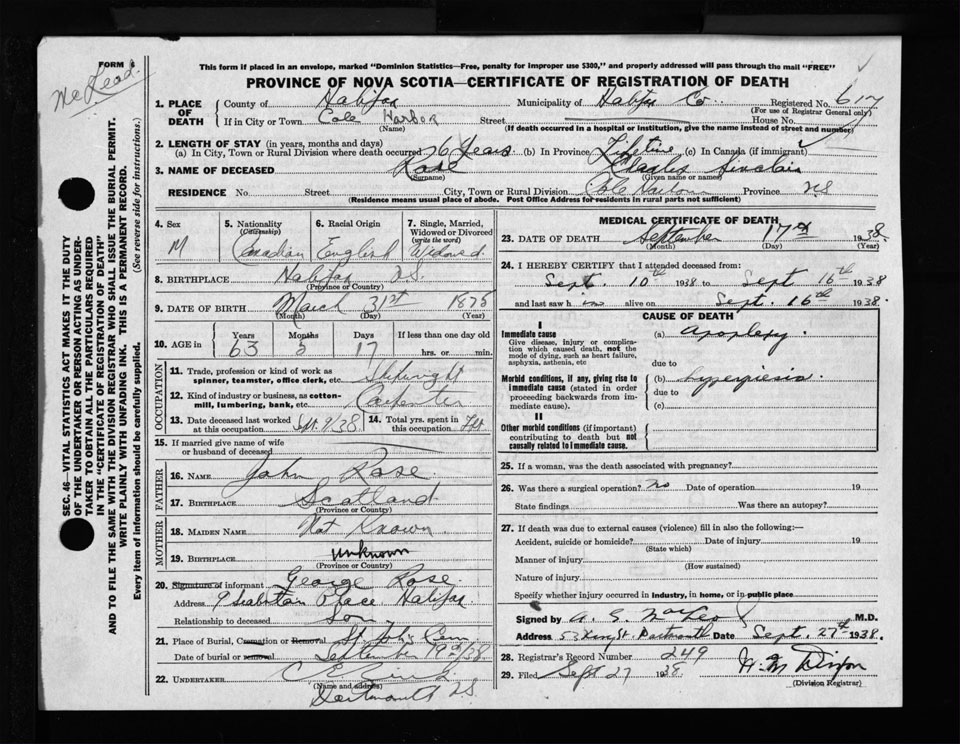 FORM 6
McLead.
This form if placed in an envelope, marked "Dominion Statistics—Free, penalty for improper use $300," and properly addressed will pass through the mail "FREE"
PROVINCE OF NOVA SCOTIA—CERTIFICATE OF REGISTRATION OF DEATH
1. PLACE OF DEATH
County of Halifax Municipality of Halifax Co. Registered No. 617
(For use of Registrar General only)
If in City or Town Cole Harbor Street House No.
(Name) (If death occurred in a hospital or institution, give the name instead of street and number)
2. LENGTH OF STAY (in years, months and days)
(a) In City, Town or Rural Division where death occurred 26 Years. (b) In Province Lifetime (c) In Canada (if immigrant)
3. NAME OF DECEASED Rose Charles Sinclair
(Surname) (Given name or names)
RESIDENCE No. Street City, Town or Rural Division Cole Harbour Province NS
(Residence means usual place of abode. Post Office Address for residents in rural parts not sufficient)
4. Sex
M
5. Nationality
(Citizenship)
Canadian
6. Racial Origin
English
7. Single, Married, Widowed or Divorced
(write the word)
Widowed
8. BIRTHPLACE Halifax N.S.
(Province or Country)
9. DATE OF BIRTH March 31st 1875
(Month) (Day) (Year)
10. AGE in
Years Months Days If less than one day old
63 5 17 hrs. or min.
OCCUPATION
11. Trade, profession or kind of work as
spinner, teamster, office clerk, etc. Shipwright
12. Kind of industry or business, as cotton-
mill, lumbering, bank, etc. Carpenter
13. Date deceased last worked
at this occupation Sept. 9/38
14. Total yrs. spent in
this occupation
15. If married give name of wife
or husband of deceased
FATHER
16. NAME John Rose
17. BIRTHPLACE Scotland
(Province or Country)
MOTHER
18. MAIDEN NAME Not Known
19. BIRTHPLACE Unknown
(Province or Country)
20. Signature of informant George Rose
Address 9 Place Halifax
Relationship to deceased Son
21. Place of Burial, Cremation or Removal St John's Cem.
Date of burial or removal September 19th/38
22. UNDERTAKER
(Name and address)
Dartmouth NS
MEDICAL CERTIFICATE OF DEATH
23. DATE OF DEATH September 17th 1938.
(Month) (Day) (Year)
24. I HEREBY CERTIFY that I attended deceased from:
Sept. 10th 1938 to Sept 16th 1938
and last saw him alive on Sept. 16th 1938.
CAUSE OF DEATH
I
Immediate cause
Give disease, injury or complica-
tion which caused death, not the
mode of dying, such as heart failure,
asphyxia, asthenia, etc
(a) apoplexy.
due to
Morbid conditions, if any, giving rise to
immediate cause (stated in order
proceeding backwards from im-
mediate cause).
(b) hyperpiesia.
due to
(c)
II
Other morbid conditions (if important)
contributing to death but not
causally related to immediate cause.
25. If a woman, was the death associated with pregnancy?
26. Was there a surgical operation? no Date of operation 19
State findings Was there an autopsy?
27. If death was due to external causes (violence) fill in also the following:—
Accident, suicide or homicide? Date of injury 19
(State which)
Manner of injury
(How sustained)
Nature of injury
Specify whether injury occurred in industry, in home, or in public place
Signed by M.D.
Address 53 King St. Dartmouth Date Sept. 27th 1938.
28. Registrar's Record Number 249
29. Filed Sept 27 1938.
(Division Registrar)
SEC. 46—VITAL STATISTICS ACT MAKES IT THE DUTY
OF THE UNDERTAKER OR PERSON ACTING AS UNDER-
TAKER TO OBTAIN ALL THE PARTICULARS REQUIRED
IN THE "CERTIFICATE OF REGISTRATION OF DEATH"
AND TO FILE THE SAME WITH THE DIVISION REGISTRAR WHO SHALL ISSUE THE BURIAL PERMIT.
WRITE PLAINLY WITH UNFADING INK. THIS IS A PERMANENT RECORD.
Every item of information should be carefully supplied. (See reverse side for instructions.)